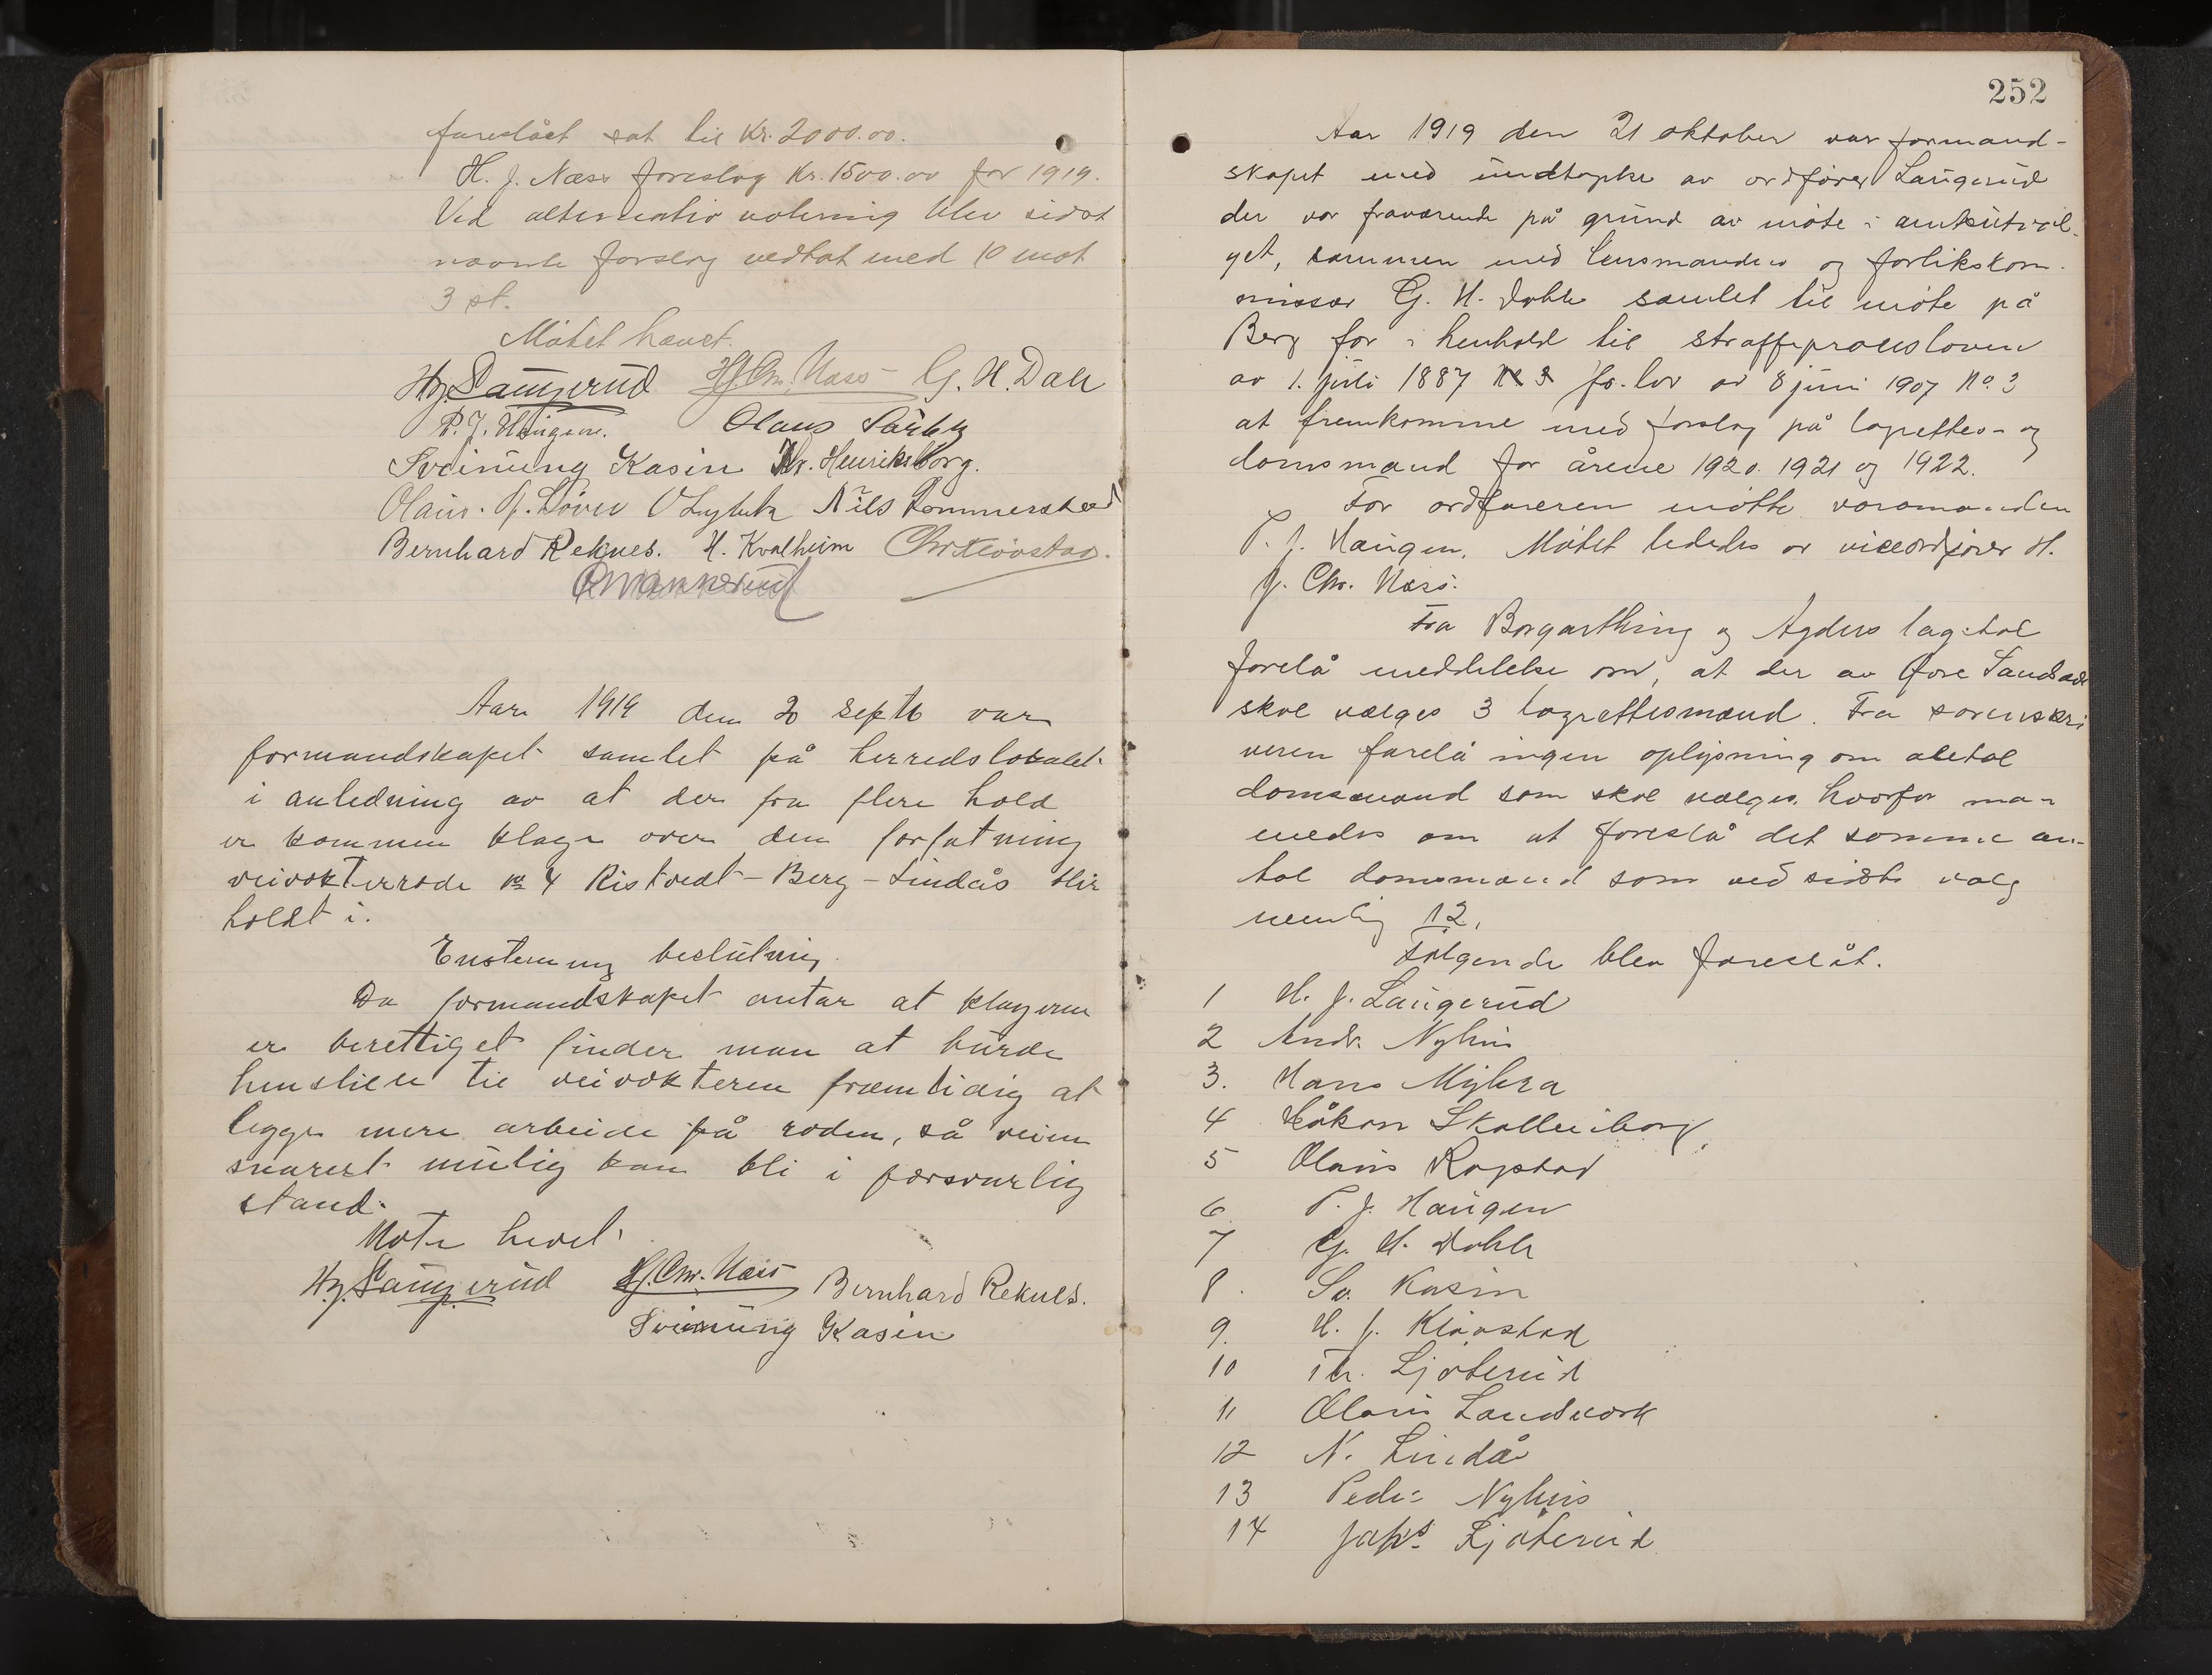 foreslået sat til Kr. 2000.00.
H. J. Næss foreslog Kr. 1500.00 for 1919.
Ved alternativ votering blev sidst
nævnte forslag vedtat med 10 mot
3 st.
Møtet hævet.
H.J. Laugerud H.J. Chr. Næss G. H. Dahl
P. J. Haugen. Olaus
Sveinung Kasin Henriksborg.
Olaus Nils Sommerstad
Bernhard Reknes. H. Kvalheim Chr Kløvstad.
Aar 1919 den 20 septb var
formandskapet samlet på herredslokalet
i anledning av at der fra flere hold
er kommen klage over den forfatning
veivokterrode no 4 Ristvedt - Berg - Lindås blir
holdt i.
Enstemmig beslutning.
Da formandskapet antar at klagerne
er berettiget finder man at burde
henstille til veivokteren fræmtidig at
legge mere arbeide på roden, så veien
snarest mulig kan bli i forsvarlig
stand.
Møte hevet.
H.J. Laugerud H.J. Chr. Næss Bernhard Reknes.
Sveinung Kasin
252
Aar 1919 den 21 oktober var formand-
skapet med undtagelse av ordfører Laugerud
der var fraværende på grund av møte i amtsutval-
get, sammen med lensmanden og forlikskom-
missær G. H. Dahle samlet til møte på
Berg for i henhold til straffeprocesloven
av 1. juli 1887 jfr. lov av 8 juni 1907 No. 3
at fremkomme med forslag på lagrettes- og
domsmænd for årene 1920. 1921 og 1922.
For ordføreren møtte varamanden
P. J. Haugen. Møtet lededes av viceordfører H.
J. Chr. Næss.
Fra Borgarthing og Agders lagstol
forelå meddelelse om, at der av Øvre Sandsvær
skal vælges 3 lagrettesmænd. Fra sorenskri
veren forelå ingen oplysning om antal
domsmænd som skal vælges, hvorfor man
enedes om at foreslå det samme an-
tal domsmænd som ved sidste valg
nemlig 12.
Følgende blev foreslåt.
1 H. J. Laugerud
2 Andr. Nyhus
3. Hans Myhra
4 Håkon Skollenborg
5 Olaus Rogstad
6 P. J. Haugen
7 G. H. Dahle
8. Sv. Kasin
9. H. J. Kløvstad
10 Th. Ljøterud
11 Olaus Landsverk
12 N. Lindås
13 Peder Nyhus
14 Jahs Ljøterud